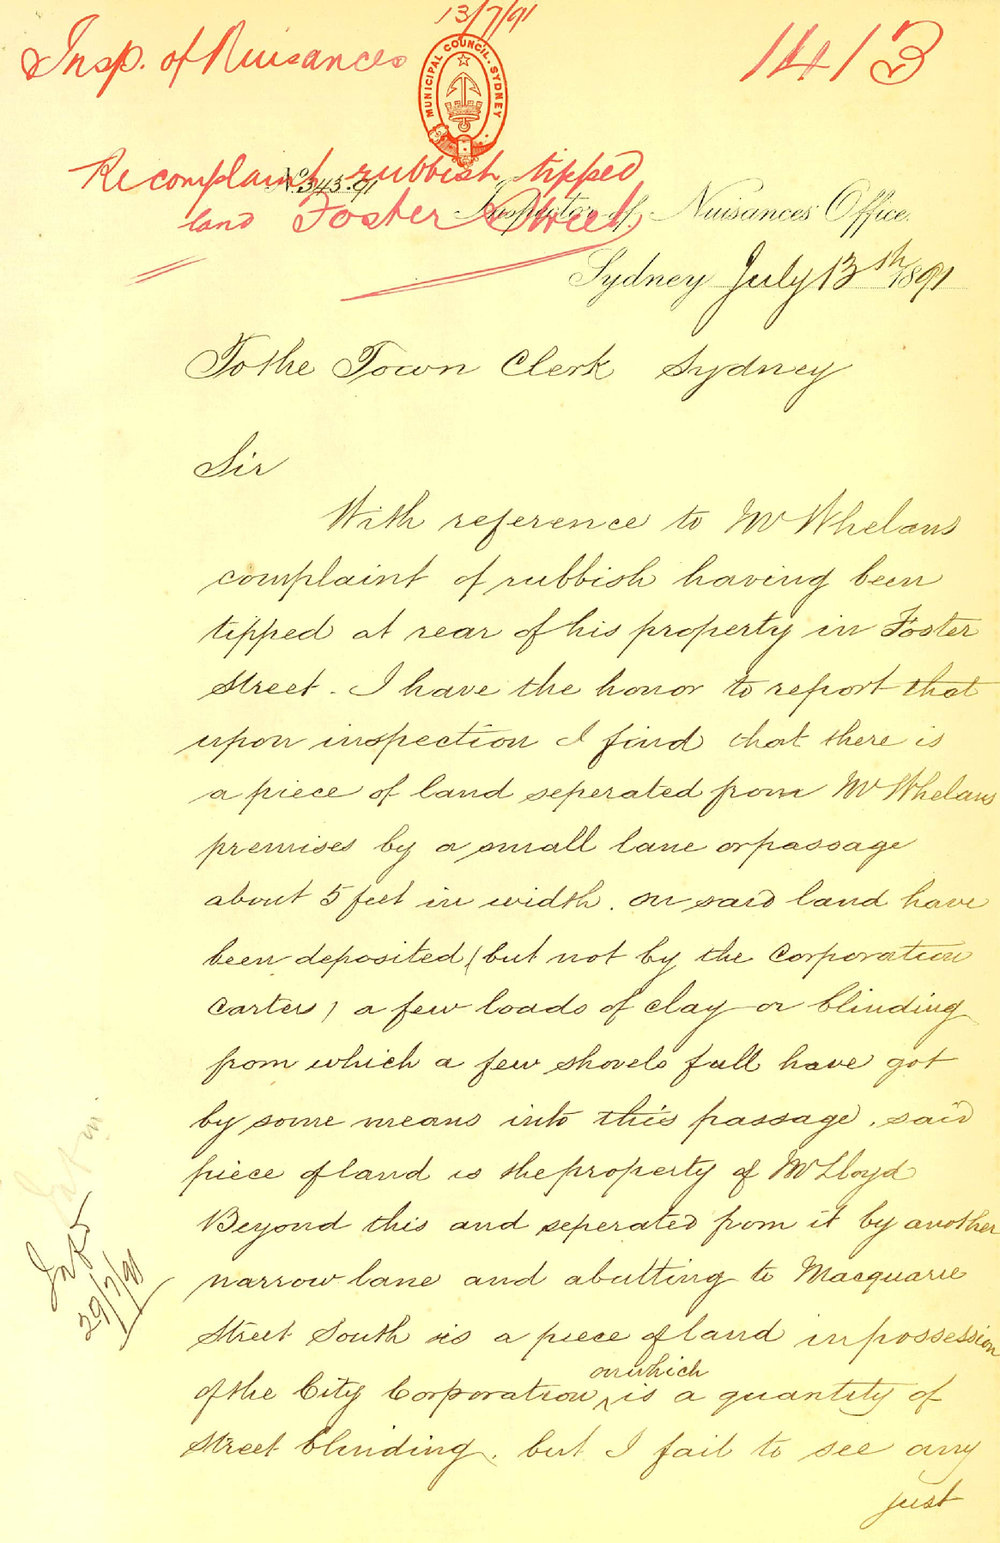 13/7/91
Insp. of Nuisances
1413
MUNICIPAL COUNCIL. SYDNEY
Re complaint rubbish tipped
No. 343.91
land Foster Street
Inspector of Nuisances Office.
Sydney July 13th 1891
To the Town Clerk Sydney
Sir
With reference to Mr Whelans
complaint of rubbish having been
tipped at rear of his property in Foster
Street. I have the honor to report that
upon inspection I find that there is
a piece of land seperated from Mr Whelans
premises by a small lane or passage
about 5 feet in width. on said land have
been deposited (but not by the Corporation
Carters) a few loads of clay or blinding
from which a few shovels full have got
by some means into this passage. said
piece of land is the property of Mr Lloyd
Beyond this and seperated from it by another
narrow lane and abutting to Macquarie
Street South is a piece of land in possession
on which
of the City Corporation is a quantity of
Street blinding. but I fail to see any
just
29/7/91